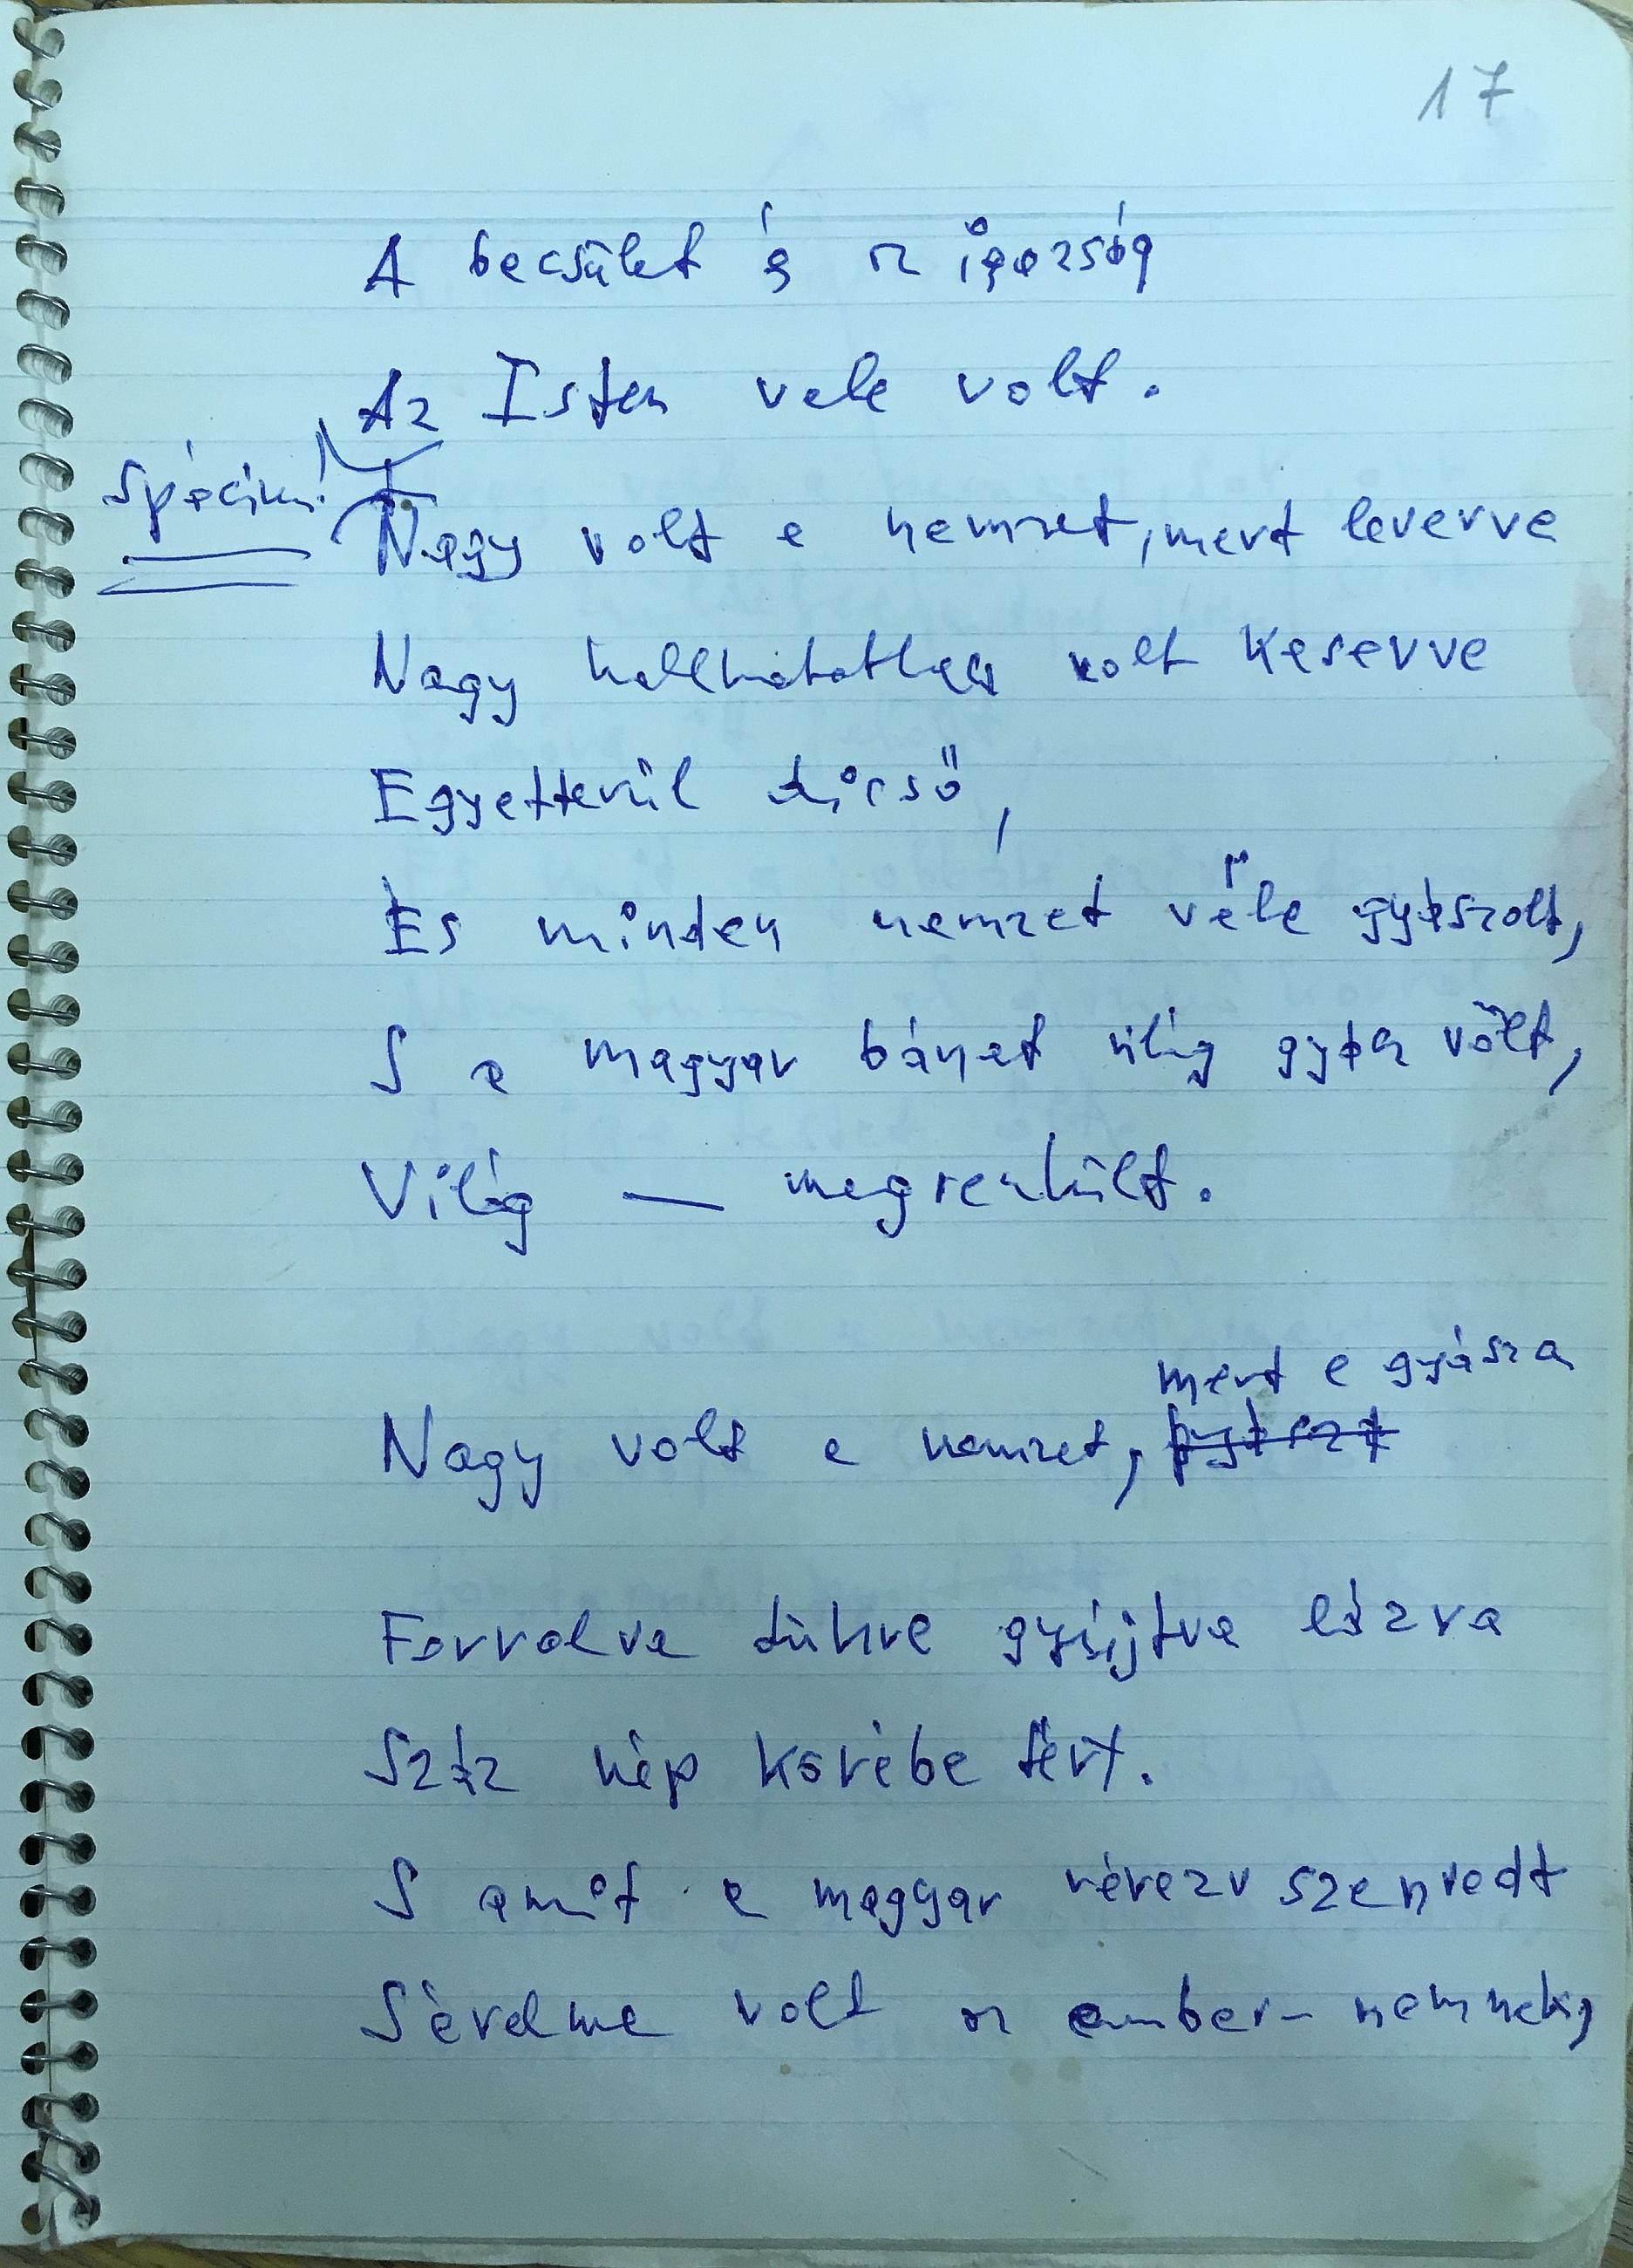 17
A becsület és az igazság
Az Isten vele volt.
Spácium!
Nagy volt e nemzet, mert leverve
Nagy hallhatatlan volt keserve
Egyetterül dicső,
És minden nemzet véle gyászolt,
S a magyar bánat világ gyász volt,
Világ — megrendült.
mert e gyásza
Nagy volt e nemzet,
Forralva dühre gyújtva lázra
Száz nép körébe tért.
S amit a magyar vérezv szenvedt
Sérelme volt az ember-nemnekig